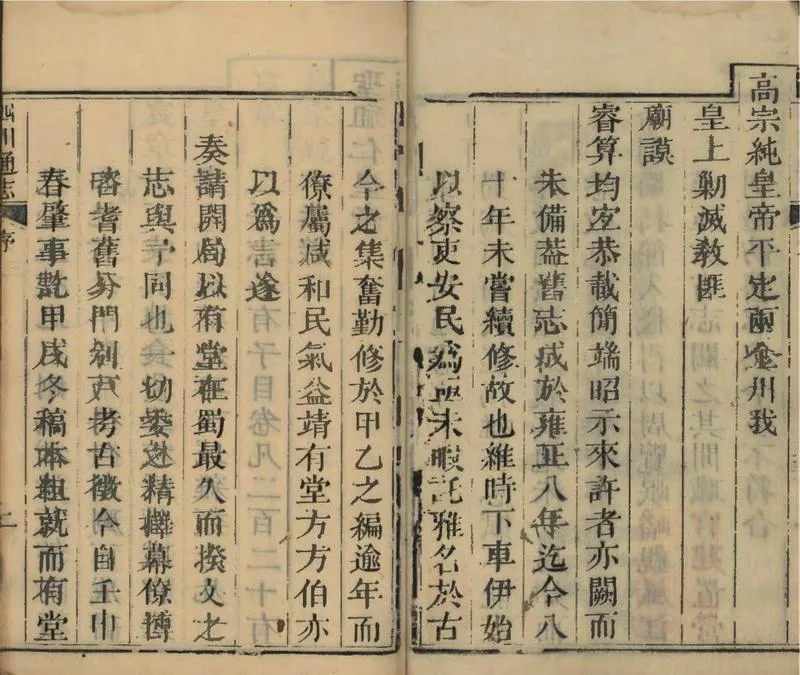 高宗純皇帝平定兩金川我
皇上勦滅教匪
廟謨
睿算均宜恭載簡端昭示來許者亦闕而
未備蓋舊志成於雍正八年迄今八
十年未嘗續修故也維時下車伊始
以察吏安民為亟未暇託雅名於古
今之集奮勤修於甲乙之編逾年而
僚屬咸和民氣益靖有堂方方伯亦
以為志遂
奏請開局以有堂在蜀最久而揆文之
志與予同也一切委之精擇幕僚博
咨耆舊分門别戸考古徵今自壬申
春肇事訖甲戌冬稿本粗就而有堂
四川通志
序
二